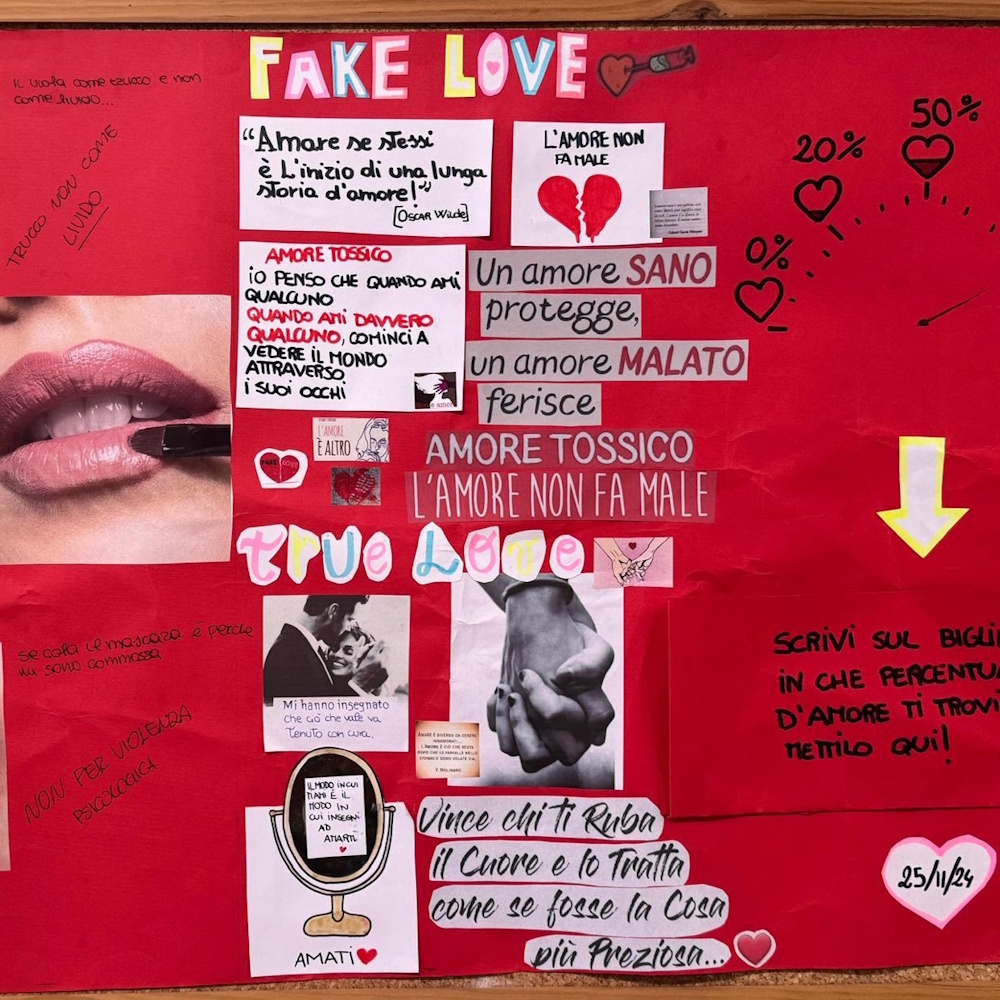 FAKE LOVE
Il viola come trucco e non
come livido...
TRUCCO NON COME
LIVIDO
"Amare se stessi
è L'inizio di una lunga
storia d'amore!"
[Oscar Wilde]
L'AMORE NON
FA MALE
AMORE TOSSICO
IO PENSO CHE QUANDO AMI
QUALCUNO
QUANDO AMI DAVVERO
QUALCUNO, COMINCI A
VEDERE IL MONDO
ATTRAVERSO
I SUOI OCCHI
Un amore SANO
protegge,
un amore MALATO
ferisce
AMORE TOSSICO
L'AMORE NON FA MALE
L'AMORE
È ALTRO
FAKE LOVE
0%
20%
50%
TRUE LOVE
Se cola il mascara è perché
mi sono commossa
NON PER VIOLENZA
PSICOLOGICA
Mi hanno insegnato
che ciò che vale va
tenuto con cura.
AMARE È DIVERSO DA ESSERE
INNAMORATI...
L'AMORE È CIÒ CHE RESTA
DOPO CHE LE FARFALLE NELLO
STOMACO SONO VOLATE VIA.
IL MODO IN CUI
TI AMI È IL
MODO IN
CUI INSEGNI
AD
AMARTI
AMATI
Vince chi ti Ruba
il Cuore e lo Tratta
come se fosse la Cosa
più Preziosa...
SCRIVI SUL BIGLI
IN CHE PERCENTU
D'AMORE TI TROVI
METTILO QUI!
25/11/24